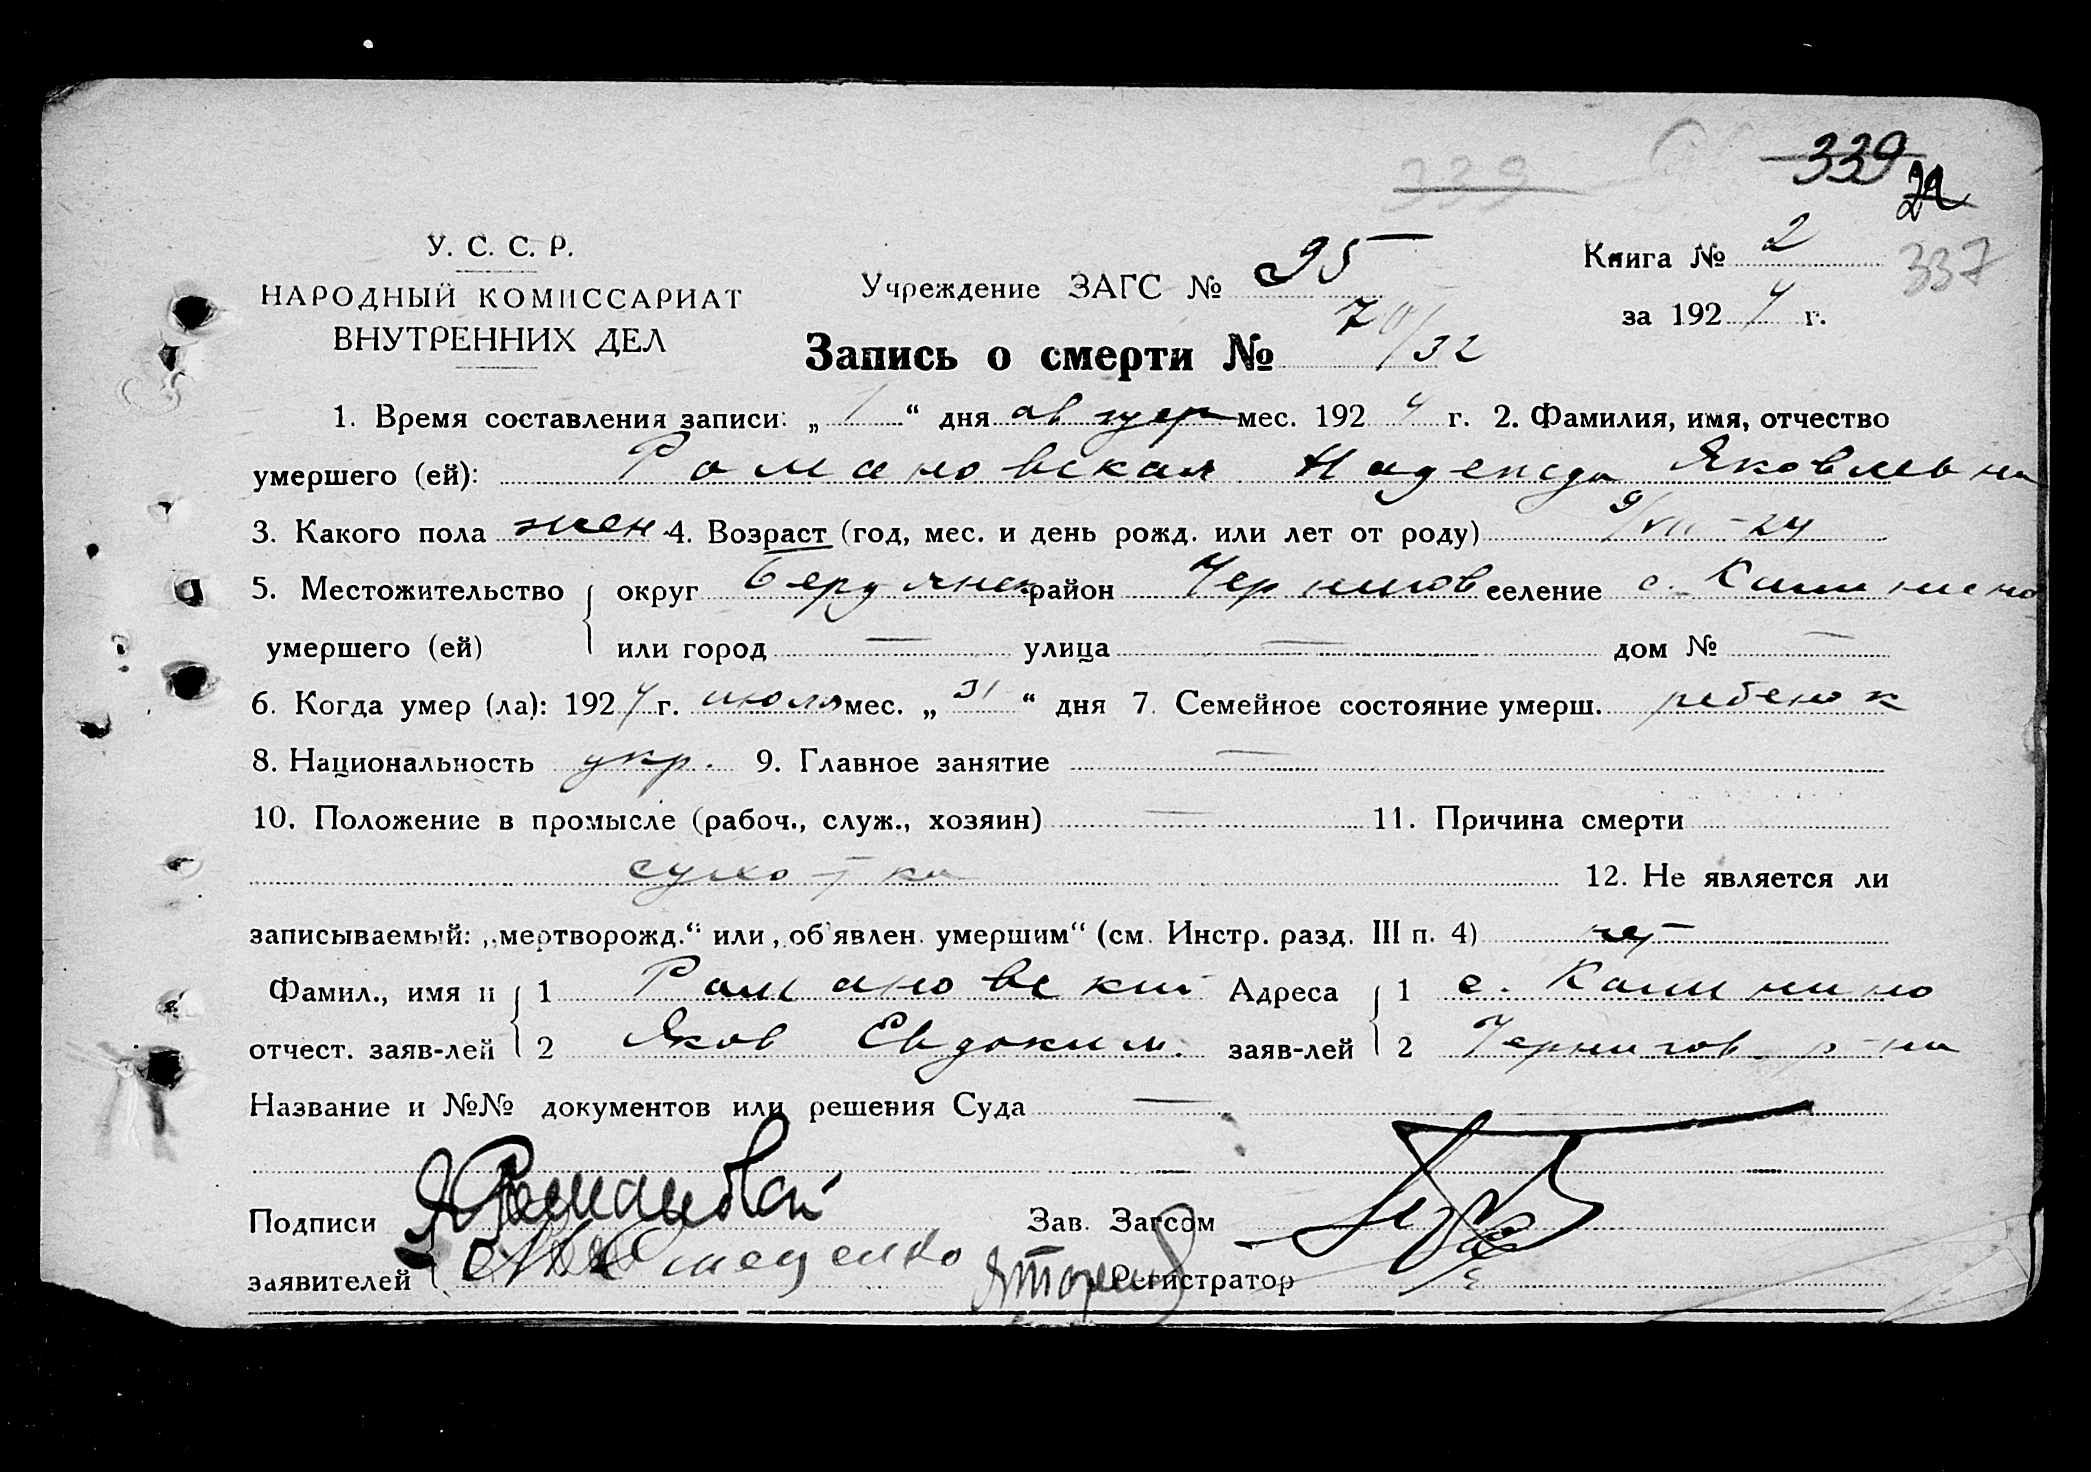 339
339
22
У. С. С. Р.
НАРОДНЫЙ КОМИССАРИАТ
ВНУТРЕННИХ ДЕЛ
Учреждение ЗАГС № 95
Книга № 2
337
за 1924 г.
Запись о смерти № 70/32
1. Время составления записи: „ 1 “ дня август мес. 1924 г. 2. Фамилия, имя, отчество
умершего (ей): Романовская Надежда Яковлевна
3. Какого пола жен. 4. Возраст (год, мес. и день рожд. или лет от роду) 9/VII-24
5. Местожительство округ Бердянск район Чернигов селение с. Калинино
умершего (ей) или город — улица — дом № —
6. Когда умер (ла): 1924 г. июля мес. „ 31 “ дня 7. Семейное состояние умерш. ребенок
8. Национальность укр. 9. Главное занятие —
10. Положение в промысле (рабоч., служ., хозяин) — 11. Причина смерти
сухотка 12. Не является ли
записываемый: „мертворожд.“ или „об'явлен. умершим“ (см. Инстр. разд. III п. 4) нет
Фамил., имя и 1 Романовский Адреса 1 с. Калинино
отчест. заяв-лей 2 Яков Евдоким. заяв-лей 2 Чернигов. р-на
Название и №№ документов или решения Суда —
Подписи Я Романовский Зав. Загсом
заявителей Регистратор